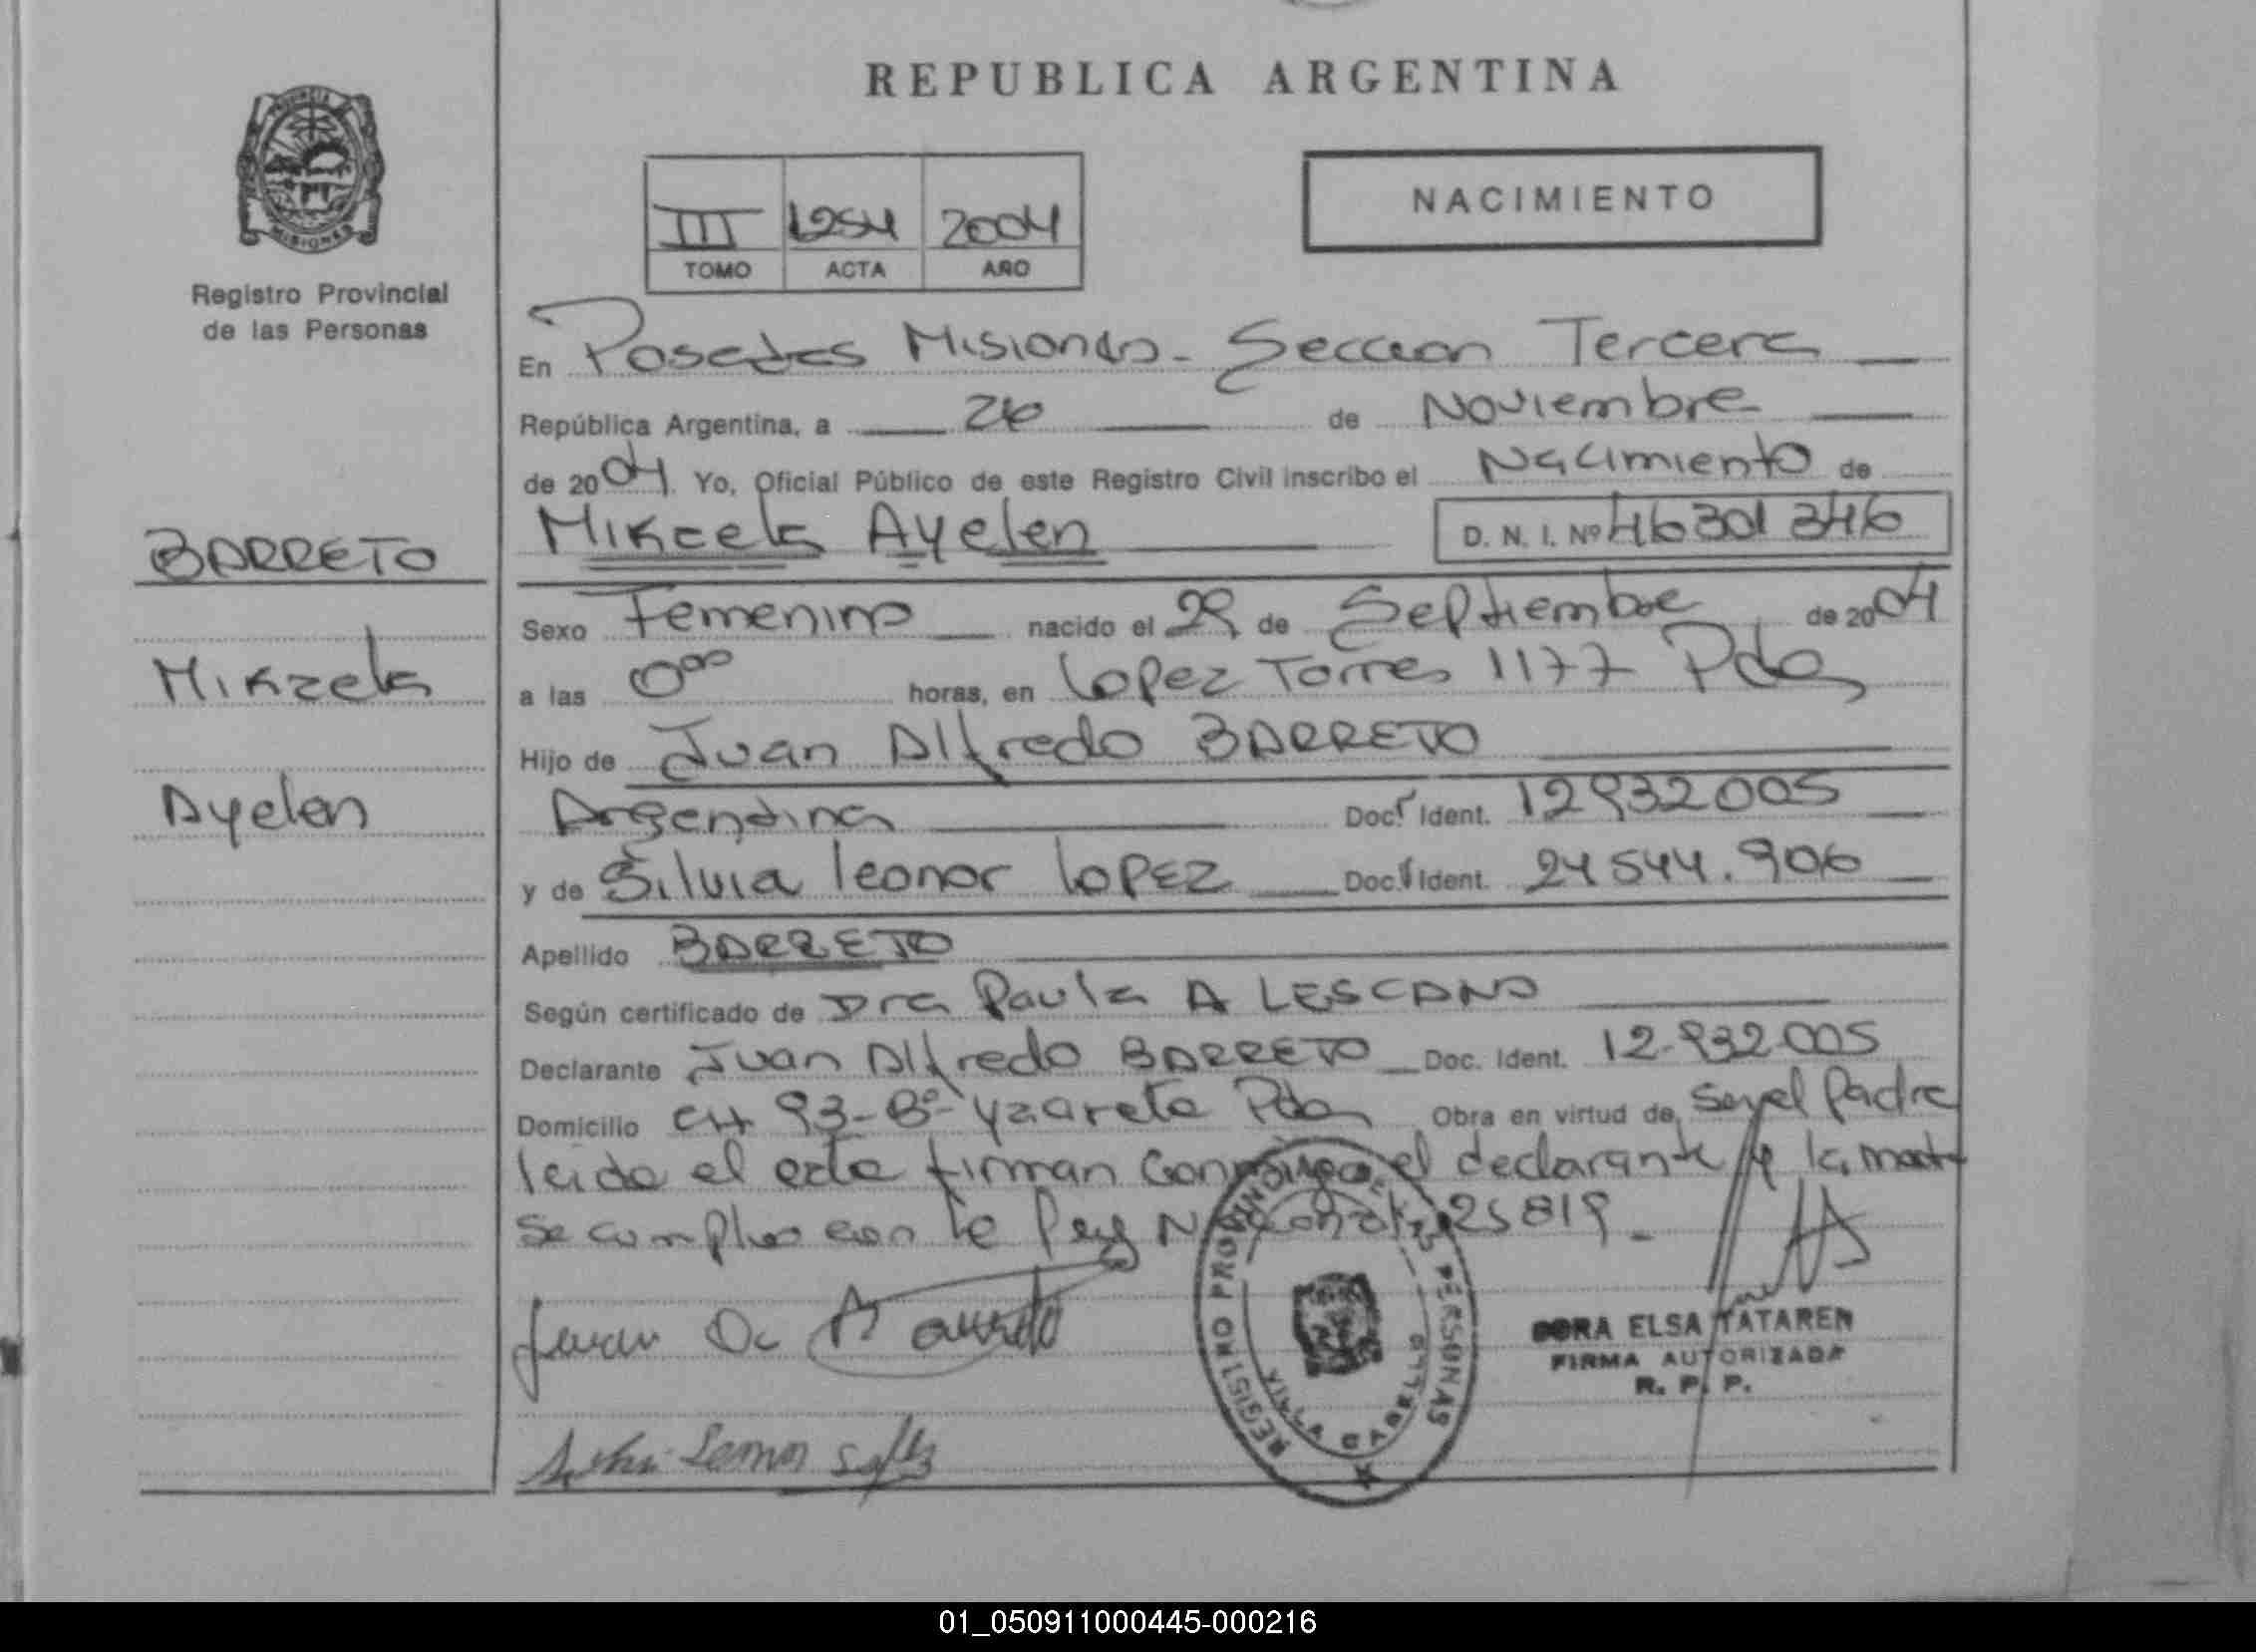 REPUBLICA ARGENTINA
PROVINCIA DE
MISIONES
Registro Provincial
de las Personas
III 1254 2004
TOMO ACTA AÑO
NACIMIENTO
En Posadas Misiones - Seccion Tercera
República Argentina, a 26 de Noviembre
de 2004. Yo, Oficial Público de este Registro Civil inscribo el Nacimiento de
Mikaela Ayelen D. N. I. Nº 46301346
BARRETO
Mikaela
Ayelen
Sexo Femenino nacido el 29 de Septiembre de 2004
a las 0⁰⁰ horas, en Lopez Torres 1177 Pdas
Hijo de Juan Alfredo BARRETO
Argentina Doc. Ident. 12932005
y de Silvia Leonor LOPEZ Doc. Ident. 24544.906
Apellido BARRETO
Según certificado de Dra Paula A LESCANO
Declarante Juan Alfredo BARRETO Doc. Ident. 12.932.005
Domicilio CH 93 - Bº Yzareta Pdas Obra en virtud de Ser el Padre
leida el acta firman conmigo el declarante y la madre
se cumplio con la Ley Nacional 25819.-
REGISTRO PROVINCIAL DE LAS PERSONAS
VILLA CABELLO
DORA ELSA TATAREN
FIRMA AUTORIZADA
R. P. P.
01_050911000445-000216